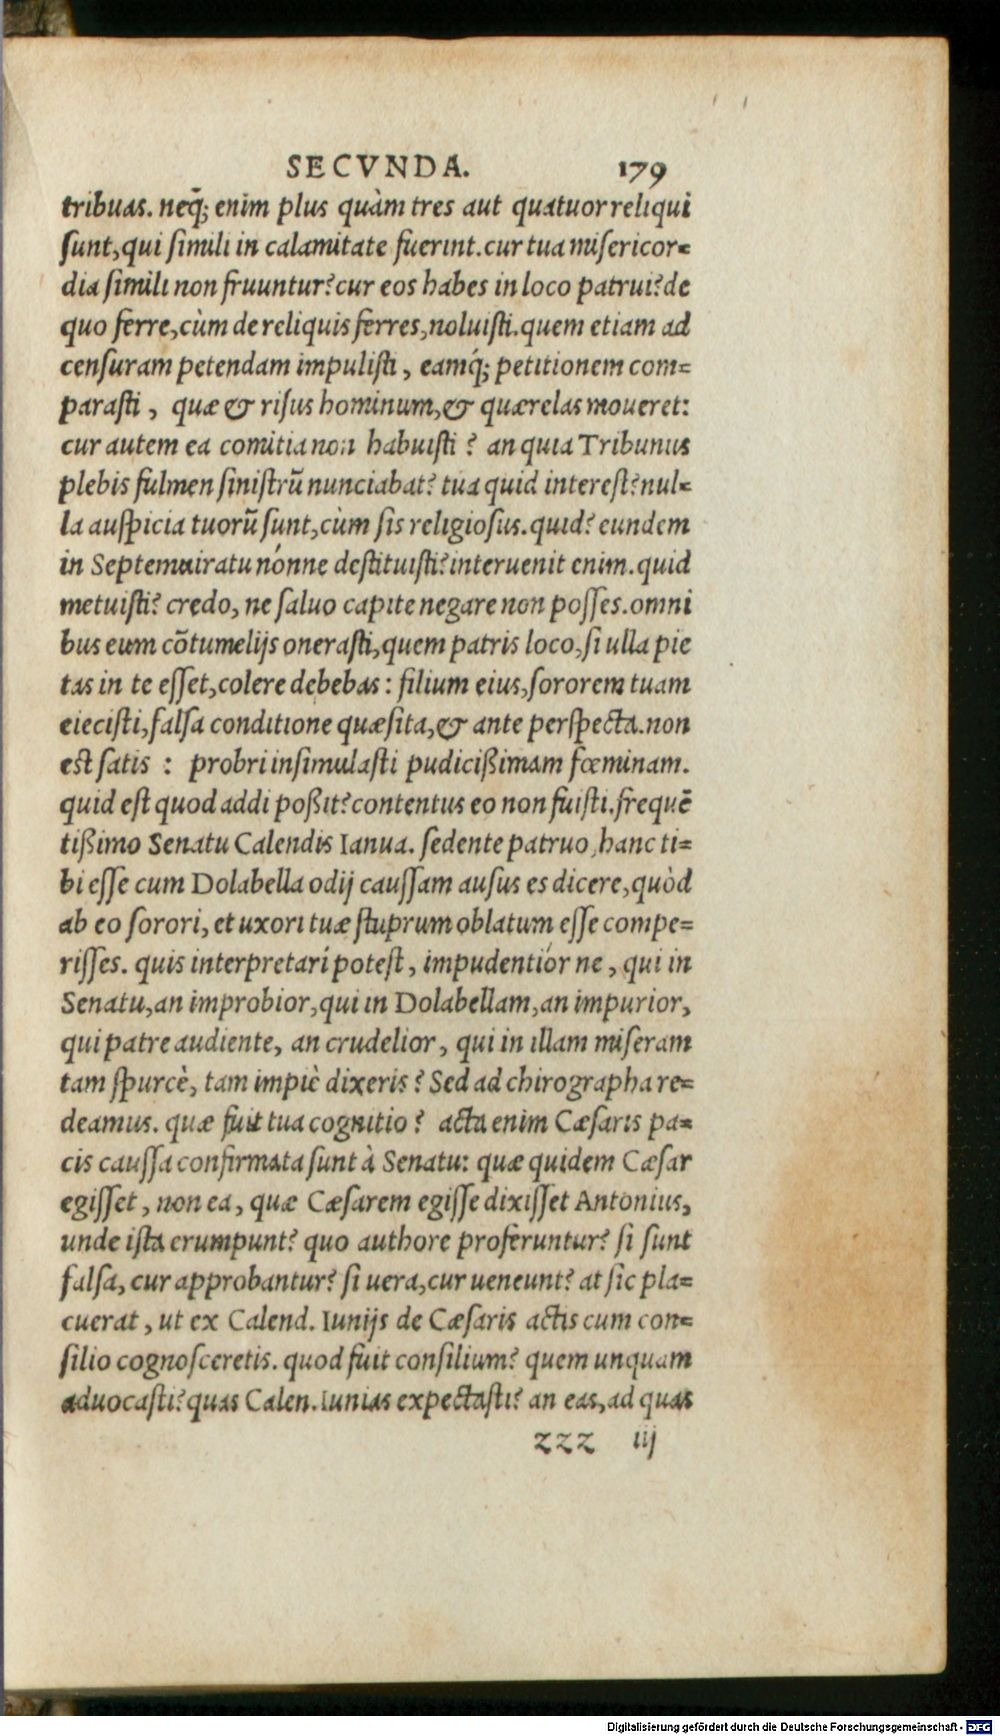 SECVNDA. 179
tribuas. neq̃; enim plus quàm tres aut quatuor reliqui
ſunt, qui ſimili in calamitate fuerint. cur tua miſericor=
dia ſimili non fruuntur? cur eos habes in loco patrui? de
quo ferre, cùm de reliquis ferres, noluiſti. quem etiam ad
cenſuram petendam impuliſti, eamq́; petitionem com=
paraſti, quæ & riſus hominum, & quærelas moueret:
cur autem ea comitia non habuiſti? an quia Tribunus
plebis fulmen ſiniſtrũ nunciabat? tua quid intereſt? nul=
la auſpicia tuorũ ſunt, cùm ſis religioſus. quid? eundem
in Septemuiratu nónne deſtituiſti? interuenit enim. quid
metuiſti? credo, ne ſaluo capite negare non poſſes. omni
bus eum cõtumelijs oneraſti, quem patris loco, ſi ulla pie
tas in te eſſet, colere debebas: filium eius, ſororem tuam
eieciſti, falſa conditione quæſita, & ante perſpecta. non
eſt ſatis: probri inſimulaſti pudicißimam fœminam.
quid eſt quod addi poßit? contentus eo non fuiſti. frequẽ
tißimo Senatu Calendis Ianua. ſedente patruo, hanc ti=
bi eſſe cum Dolabella odij cauſſam auſus es dicere, quòd
ab eo ſorori, et uxori tuæ ſtuprum oblatum eſſe compe=
riſſes. quis interpretari poteſt, impudentiór ne, qui in
Senatu, an improbior, qui in Dolabellam, an impurior,
qui patre audiente, an crudelior, qui in illam miſeram
tam ſpurcè, tam impiè dixeris? Sed ad chirographa re=
deamus. quæ fuit tua cognitio? acta enim Cæſaris pa=
cis cauſſa confirmata ſunt à Senatu: quæ quidem Cæſar
egiſſet, non ea, quæ Cæſarem egiſſe dixiſſet Antonius,
unde iſta erumpunt? quo authore proferuntur? ſi ſunt
falſa, cur approbantur? ſi uera, cur ueneunt? at ſic pla=
cuerat, ut ex Calend. Iunijs de Cæſaris actis cum con=
ſilio cognoſceretis. quod fuit conſilium? quem unquam
aduocaſti? quas Calen. Iunias expectaſti? an eas, ad quas
zzz iij
Digitalisierung gefördert durch die Deutsche Forschungsgemeinschaft - DFG